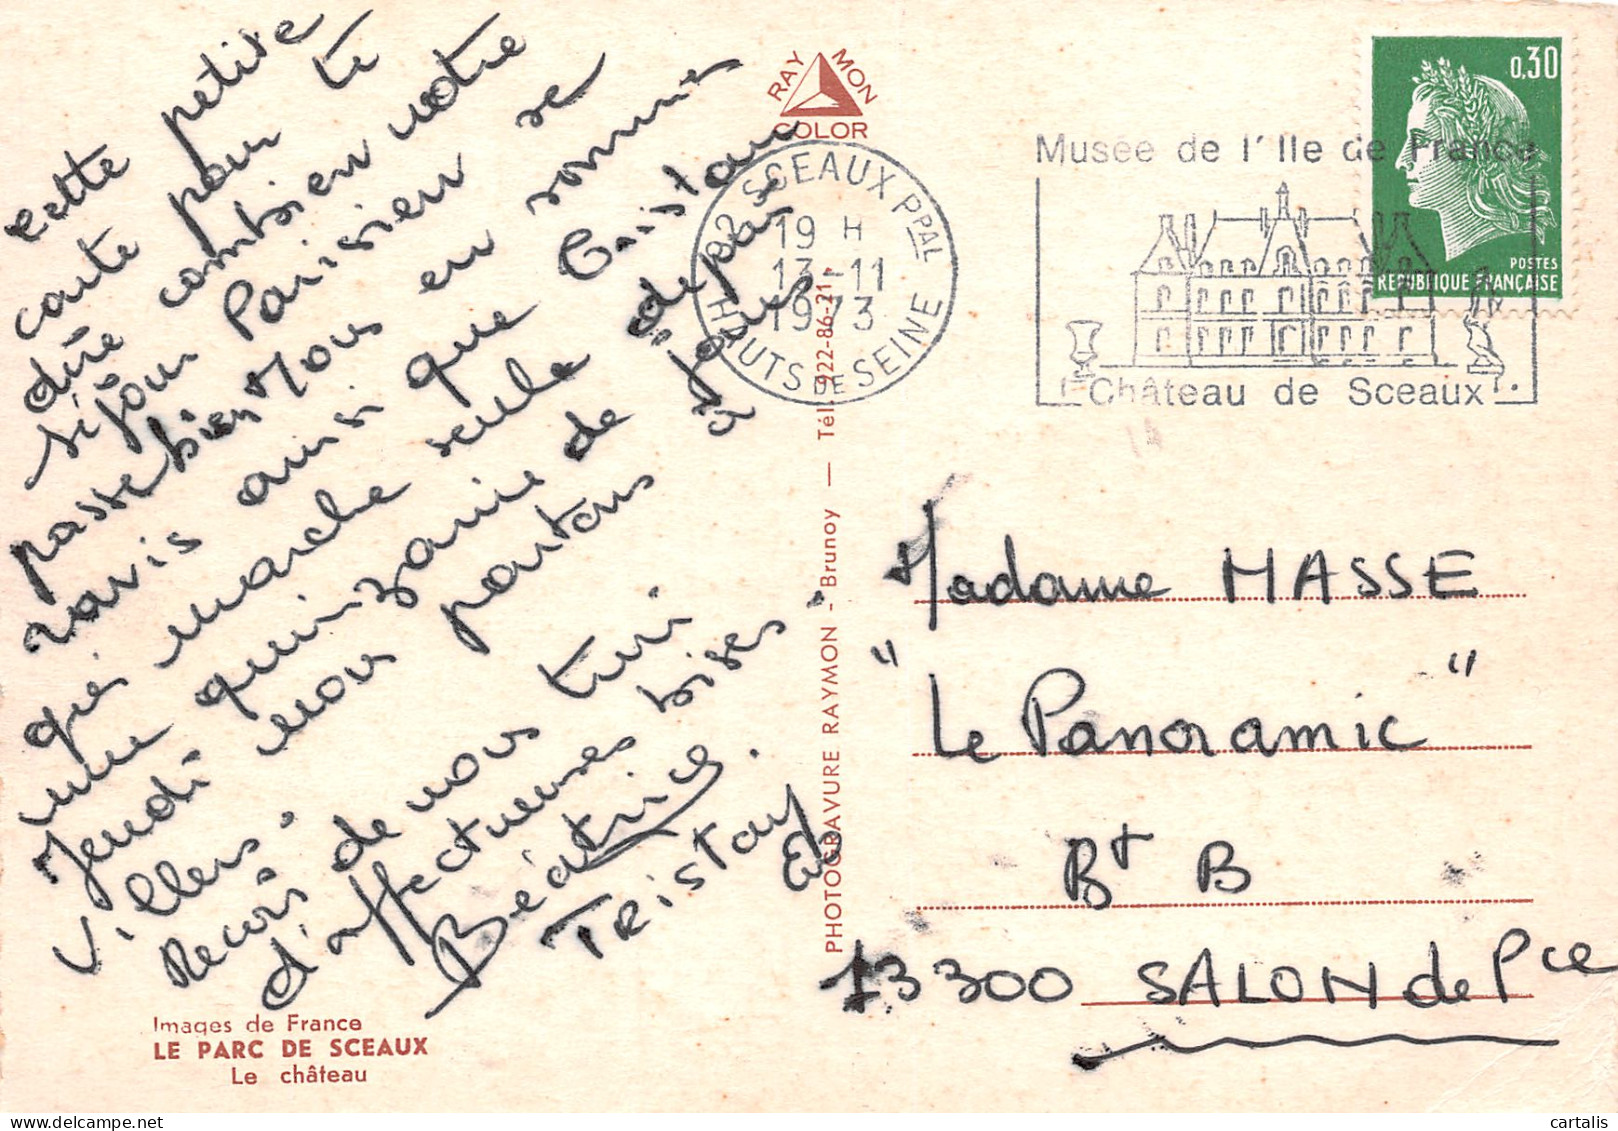 Cette petite
carte pour te
dire combien notre
séjour Parisien se
passe bien Nous en sommes
ravis ainsi que Tristan
qui marche seule depuis
une quinzaine de jours.
Jeudi nous partons à
Villers.
Recois de nous turi
d'affectueuses bises.
Béatrice
Tristan Eb
Images de France
LE PARC DE SCEAUX
Le château
RAYMON
COLOR
PHOTOGRAVURE RAYMON - Brunoy — Tél. 922-86-21.
92 SCEAUX PPAL
19 H
13-11
1973
HAUTS DE SEINE
Musée de l'Ile de France
Château de Sceaux
0,30
POSTES
REPUBLIQUE FRANÇAISE
Madame MASSE
"Le Panoramic"
Bt B
13300 SALON de Pce
cartalis